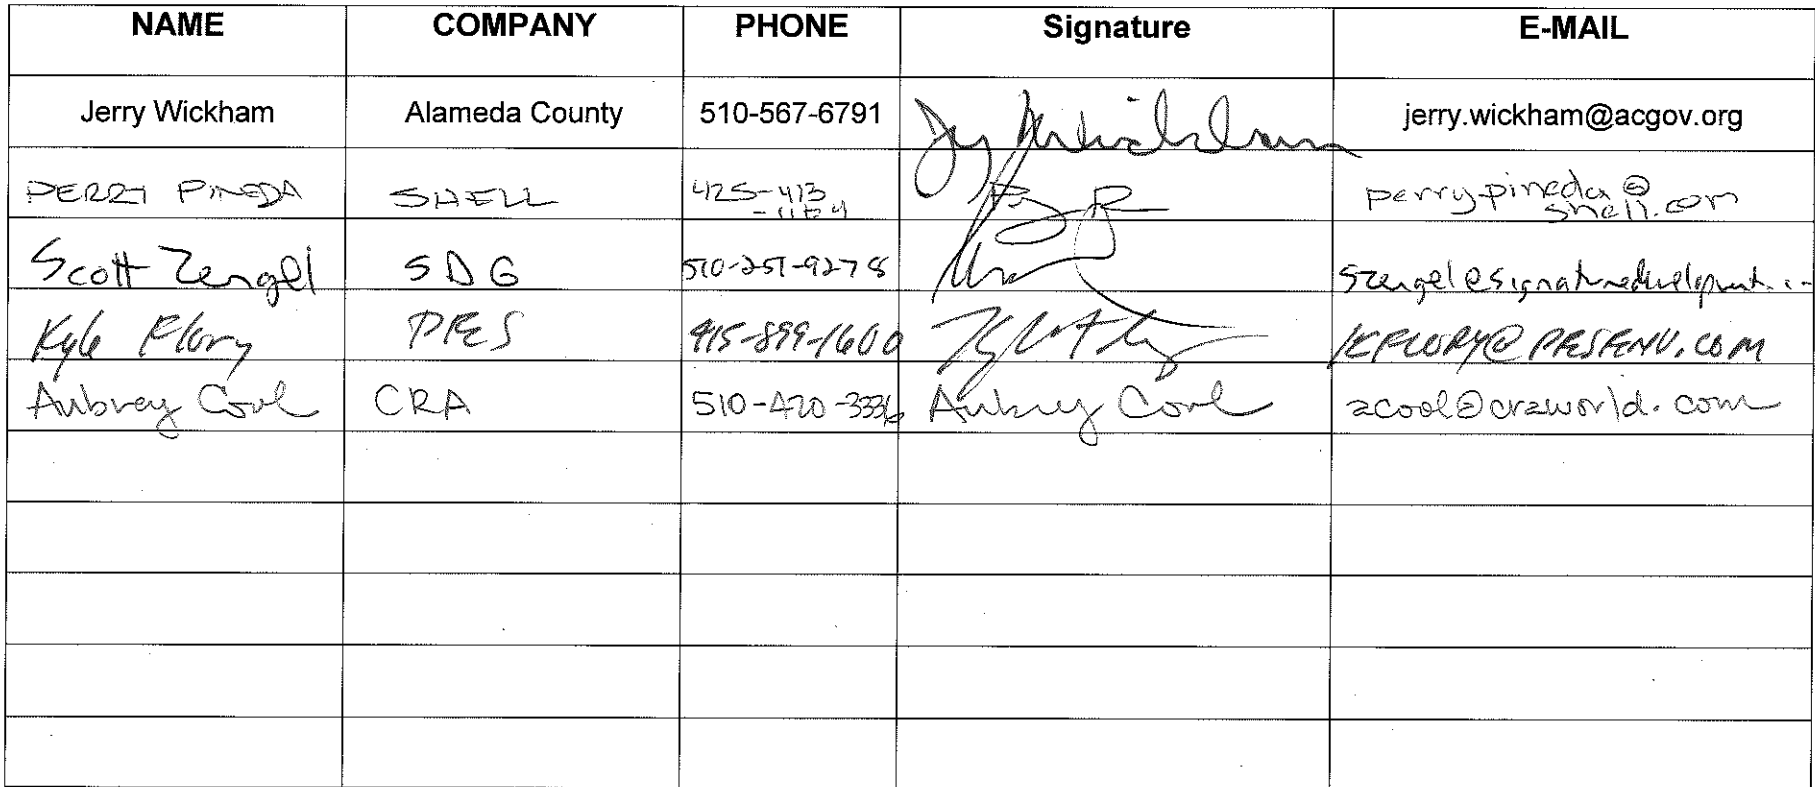 NAME COMPANY PHONE Signature E-MAIL
Jerry Wickham Alameda County 510-567-6791 jerry.wickham@acgov.org
PERRY PINEDA SHELL 425-413 perry.pineda@
shell.com
Scott Zengel SDG 510-251-9278
Kyle Flory PRES 415-899-1600 KFLORY@PRESENV.COM
Aubrey Cool CRA 510-420-3336 Aubrey Cool acool@craworld.com